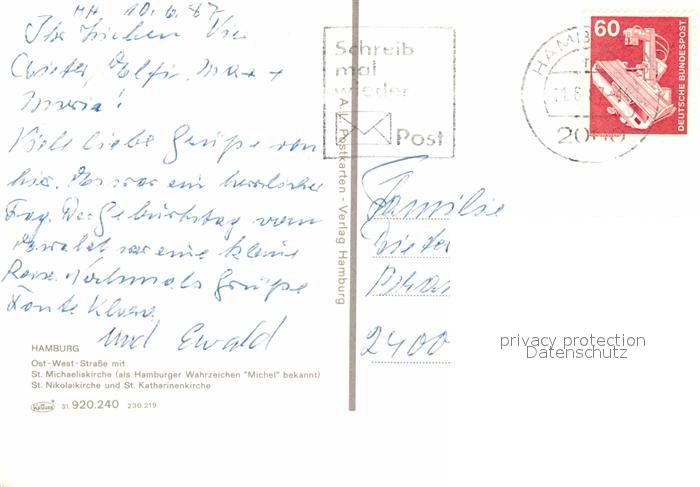 HH 10.6.87
Ihr Lieben Vier
Dieter, Elfi, Max +
Maria!
Viele liebe Grüße von
hier. Es war ein herrlicher
Tag. Der Geburtstag vom
Ewald war eine kleine
Reise. Nochmals Grüße
Tante Klara
und Ewald
HAMBURG
Ost-West-Straße mit
St. Michaeliskirche (als Hamburger Wahrzeichen "Michel" bekannt)
St. Nikolaikirche und St. Katharinenkirche
Krüger 31. 920.240 230 219
A. Postkarten - Verlag Hamburg
Schreib
mal
wieder
Post
HAMB
11.6.8
20
60
DEUTSCHE BUNDESPOST
Familie
Dieter
2400
privacy protection
Datenschutz